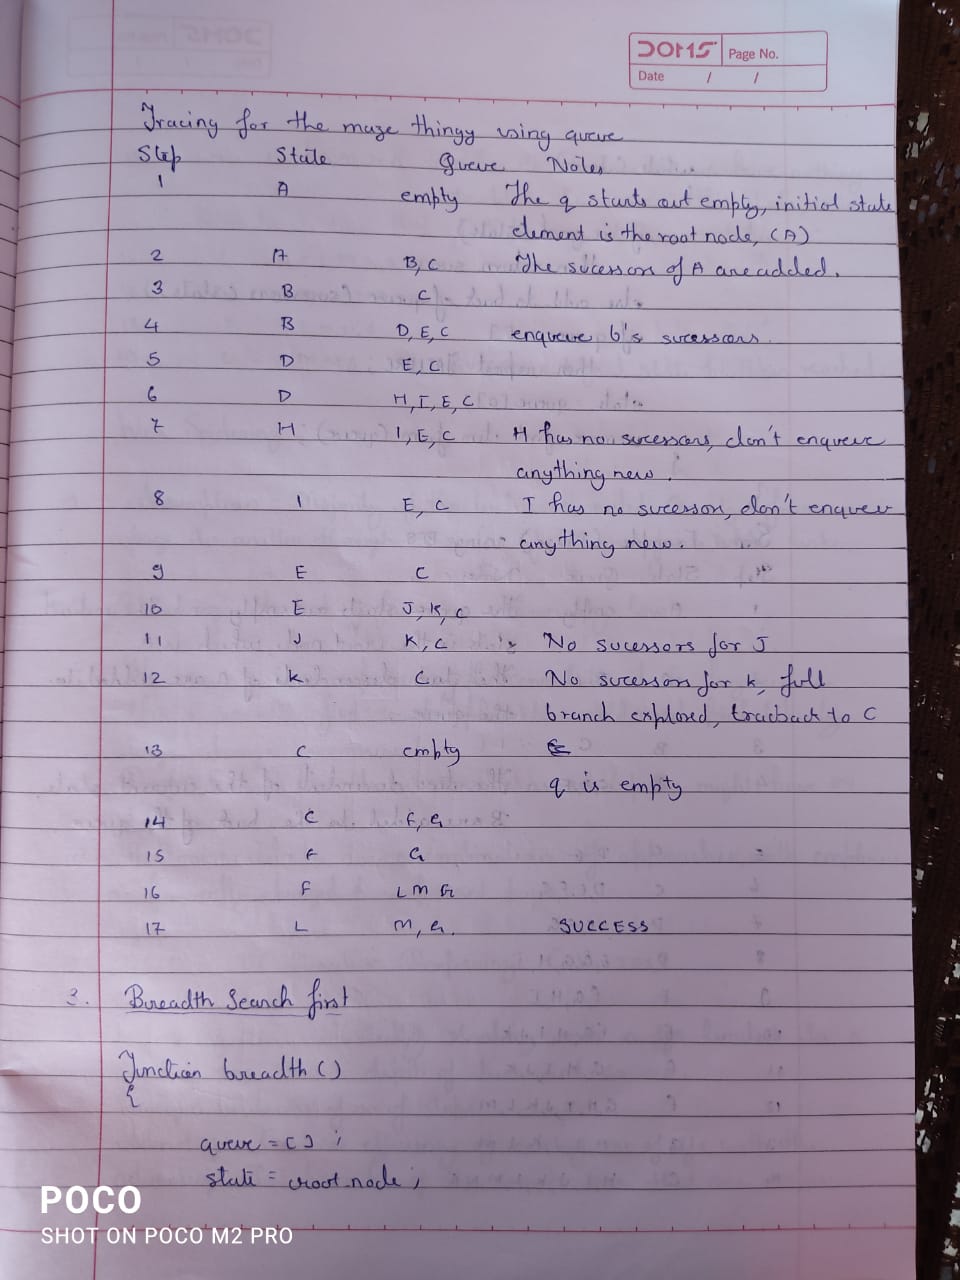 DOMS Page No.
Date / /
Tracing for the maze thingy using queue
Step State Queue Notes
1 A empty The q starts out empty, initial state
element is the root node, (A)
2 A B, C The sucessors of A are added.
3 B C
4 B D, E, C enqueue b's sucessors.
5 D E, C
6 D H, I, E, C
7 H I, E, C H has no sucessors, don't enqueue
anything new.
8 I E, C I has no sucessor, don't enqueue
anything new.
9 E C
10 E J, K, C
11 J K, C No sucessors for J
12 K C No sucessors for k, full
branch explored, tracback to C
13 C empty
q is empty
14 C F, G
15 F G
16 F L M G
17 L M, G. SUCCESS
3. Breadth Search first
Function breadth ( )
{
queue = [ ] ;
state = root node ;
POCO
SHOT ON POCO M2 PRO